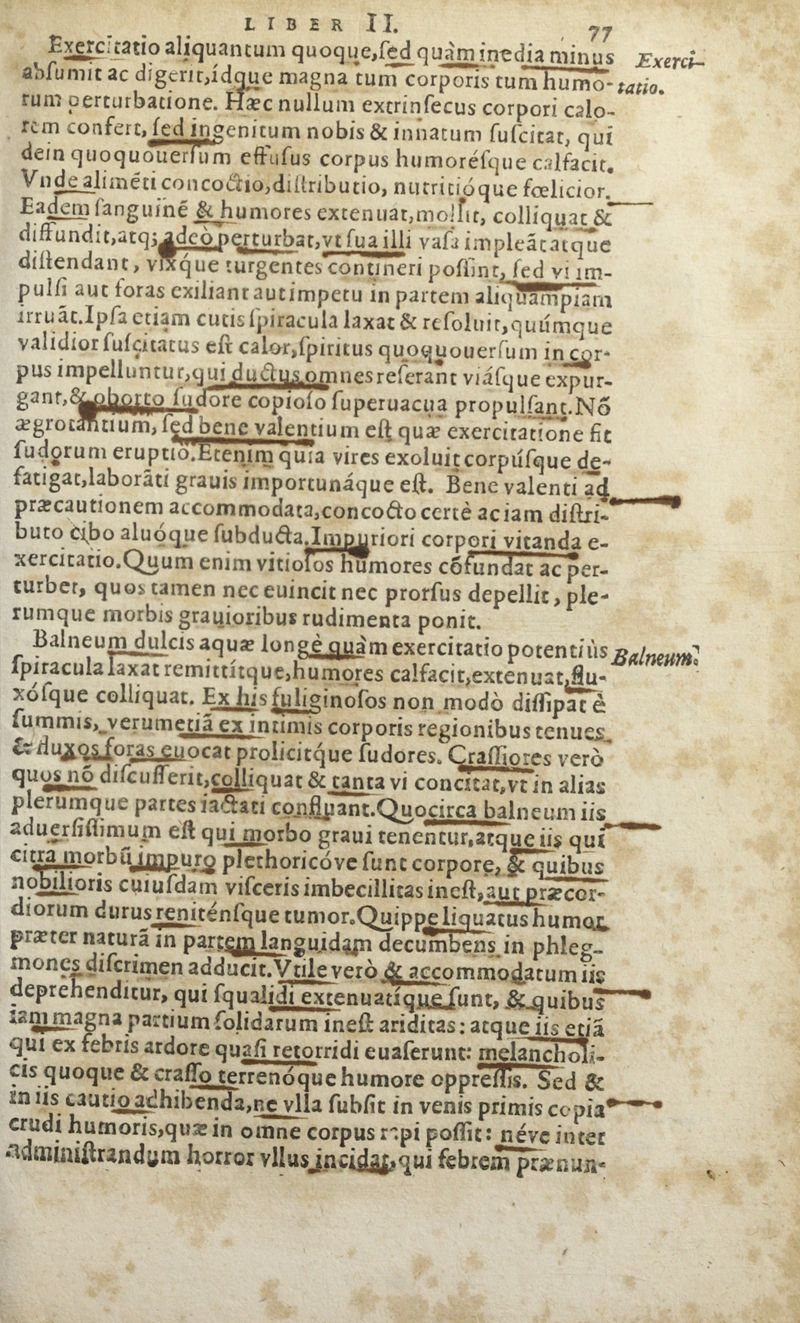 LIBER II. 77
Exercitatio aliquantum quoque,ſed quàm inedia minus Exerci-
abſumit ac digerit,idque magna tum corporis tum humo- tatio.
rum perturbatione. Hæc nullum extrinſecus corpori calo-
rem confert, ſed ingenitum nobis & innatum ſuſcitat, qui
dein quoquouerſum effuſus corpus humoréſque calfacit.
Vnde alimēti concoctio,diſtributio, nutritióque fœlicior.
Eadem ſanguinē & humores extenuat,mollit, colliquat &
diffundit,atq; adeò perturbat,vt ſua illi vaſa impleāt atque
diſtendant, vixque turgentes contineri poſſint, ſed vi im-
pulſi aut foras exiliant aut impetu in partem aliquampiam
irruāt.Ipſa etiam cutis ſpiracula laxat & reſoluit,quúmque
validior ſuſcitatus eſt calor,ſpiritus quoquouerſum in cor-
pus impelluntur,qui ductus omnes referant viáſque expur-
gant,& oborto ſudore copioſo ſuperuacua propulſant.Nō
ægrotantium, ſed bene valentium eſt quæ exercitatione fit
ſudorum eruptio.Etenim quia vires exoluit corpúſque de-
fatigat,laborāti grauis importunáque eſt. Bene valenti ad
præcautionem accommodata,concocto certè ac iam diſtri-
buto cibo aluóque ſubducta.Impuriori corpori vitanda e-
xercitatio.Quum enim vitioſos humores cōfundat ac per-
turbet, quos tamen nec euincit nec prorſus depellit, ple-
rumque morbis grauioribus rudimenta ponit.
Balneum dulcis aquæ longè quàm exercitatio potentiùs Balneum.
ſpiracula laxat remittítque,humores calfacit,extenuat,flu-
xóſque colliquat. Ex his fuliginoſos non modò diſſipat è
ſummis, verumetiā ex intimis corporis regionibus tenues
& fluxos foras euocat prolicitque ſudores. Craſſiores verò
quos nō diſcuſſerit,colliquat & tanta vi concitat,vt in alias
plerumque partes iactati confluant.Quocirca balneum iis
aduerſiſſimum eſt qui morbo graui tenentur,atque iis qui
citra morbū impuro plethoricóve ſunt corpore, & quibus
nobilioris cuiuſdam viſceris imbecillitas ineſt,aut præcor-
diorum durus reniténſque tumor.Quippe liquatus humor
præter naturā in partem languidam decumbens in phleg-
mones diſcrimen adducit.Vtile verò & accommodatum iis
deprehenditur, qui ſqualidi extenuatique ſunt, & quibus
iam magna partium ſolidarum ineſt ariditas: atque iis etiā
qui ex febris ardore quaſi retorridi euaſerunt: melancholi-
cis quoque & craſſo terrenóque humore oppreſſis. Sed &
in iis cautio adhibenda,ne vlla ſubſit in venis primis copia
crudi humoris,quæ in omne corpus rapi poſſit: néve inter
adminiſtrandum horror vllus incidat,qui febrem prænun-